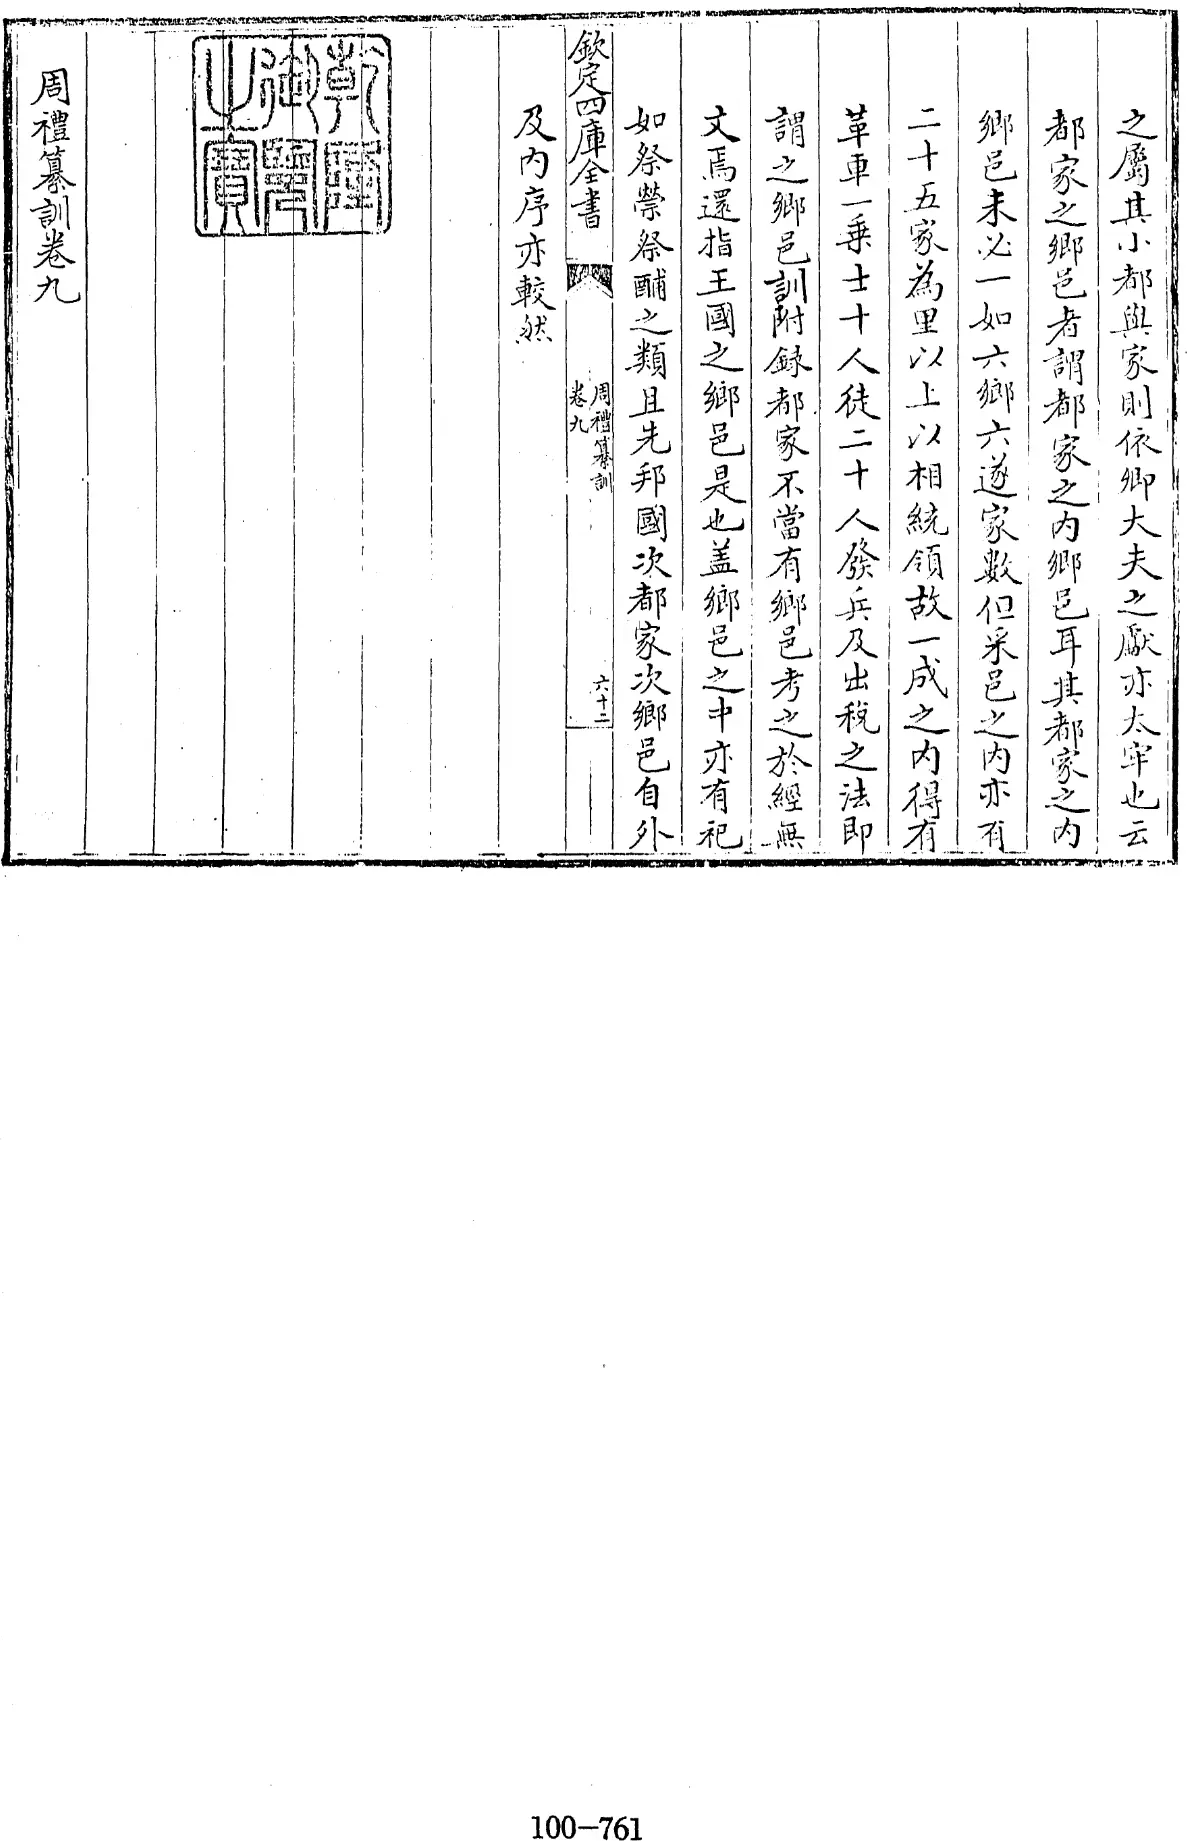 之屬其小都與家則依卿大夫之獻亦太牢也云
都家之鄉邑者謂都家之内鄉邑耳其都家之内
鄉邑未必一如六鄉六遂家數但采邑之内亦有
二十五家為里以上以相統領故一成之内得有
革車一乗士十人徒二十人發兵及出稅之法即
謂之鄉邑訓附録都家不當有鄉邑考之於經無
文焉還指王國之鄉邑是也盖鄉邑之中亦有祀
如祭禜祭酺之類且先邦國次都家次鄉邑自外
欽定四庫全書
周禮纂訓
卷九
六十二
及内序亦較然
乾隆御覽之寶
周禮纂訓卷九
100-761